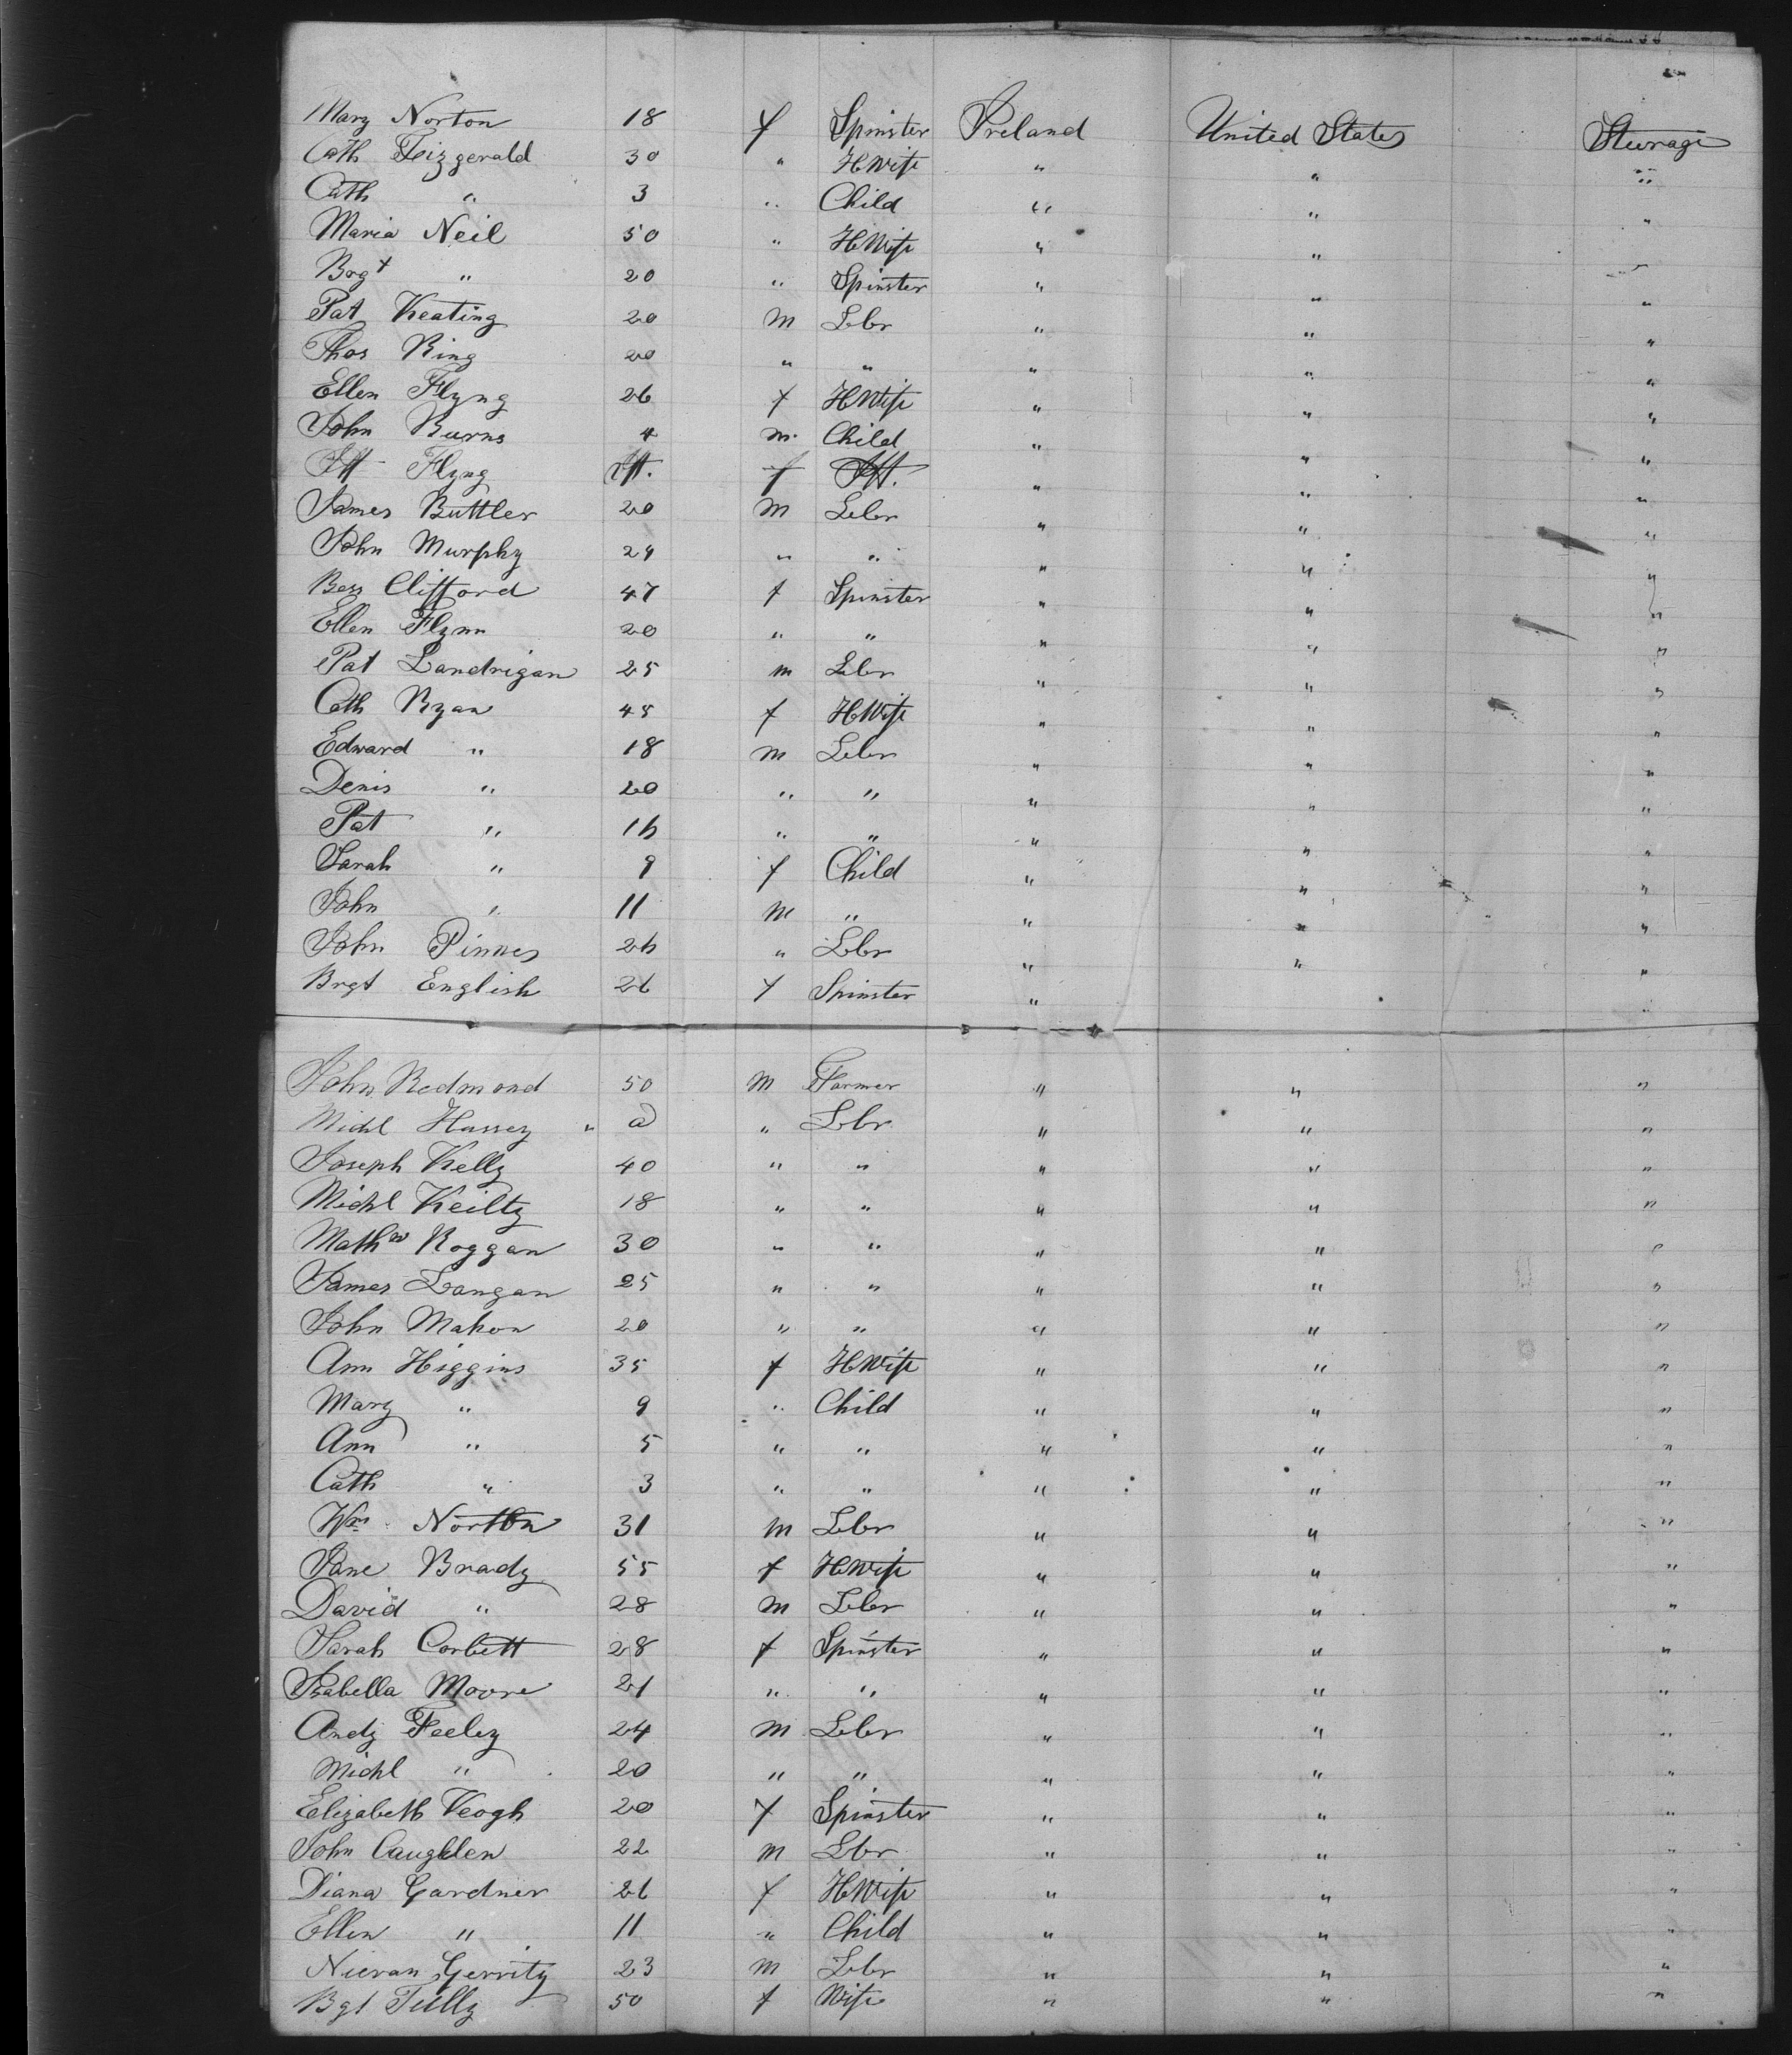 Mary Norton 18 f Spinster Ireland United States Steerage
Cath Fitzgerald 30 " HWife " " "
Cath " 3 " Child " " "
Maria Neil 50 " HWife " " "
Brgt " 20 " Spinster " " "
Pat Keating 20 m Lbr " " "
Thos King 20 " " " " "
Ellen Flyng 26 f HWife " " "
John Burns 4 m Child " " "
Iff Flyng Iff. f Iff. " " "
James Buttler 20 m Lbr " " "
John Murphy 24 " " " " "
Bess Clifford 47 f Spinster " " "
Ellen Flynn 20 " " " " "
Pat Landrigan 25 m Lbr " " "
Cath Ryan 45 f HWife " " "
Edward " 18 m Lbr " " "
Denis " 20 " " " " "
Pat " 16 " " " " "
Sarah " 9 f Child " " "
John " 11 m " " " "
John Pinnes 26 " Lbr " " "
Brgt English 26 f Spinster " "
John Redmond 50 m Farmer " " "
Michl Hussey " " Lbr " " "
Joseph Kelly 40 " " " " "
Michl Keilty 18 " " " " "
Mathw Roggan 30 " " " " "
James Langan 25 " " " " "
John Mahon 20 " " " " "
Ann Higgins 35 f HWife " " "
Mary " 9 " Child " " "
Ann " 5 " " " " "
Cath " 3 " " " " "
Wm Norton 31 m Lbr " " "
Jane Brady 55 f HWife " " "
David " 28 m Lbr " " "
Sarah Corbett 28 f Spinster " " "
Isabella Moore 21 " " " " "
Andy Feeley 24 m Lbr " " "
Michl " 20 " " " " "
Elizabeth Keogh 20 f Spinster " " "
John Caughlen 22 m Lbr " " "
Diana Gardner 26 f HWife " " "
Ellen " 11 " Child " " "
Gerrity 23 m Lbr " " "
Bgt Tully 50 f Wife " " "